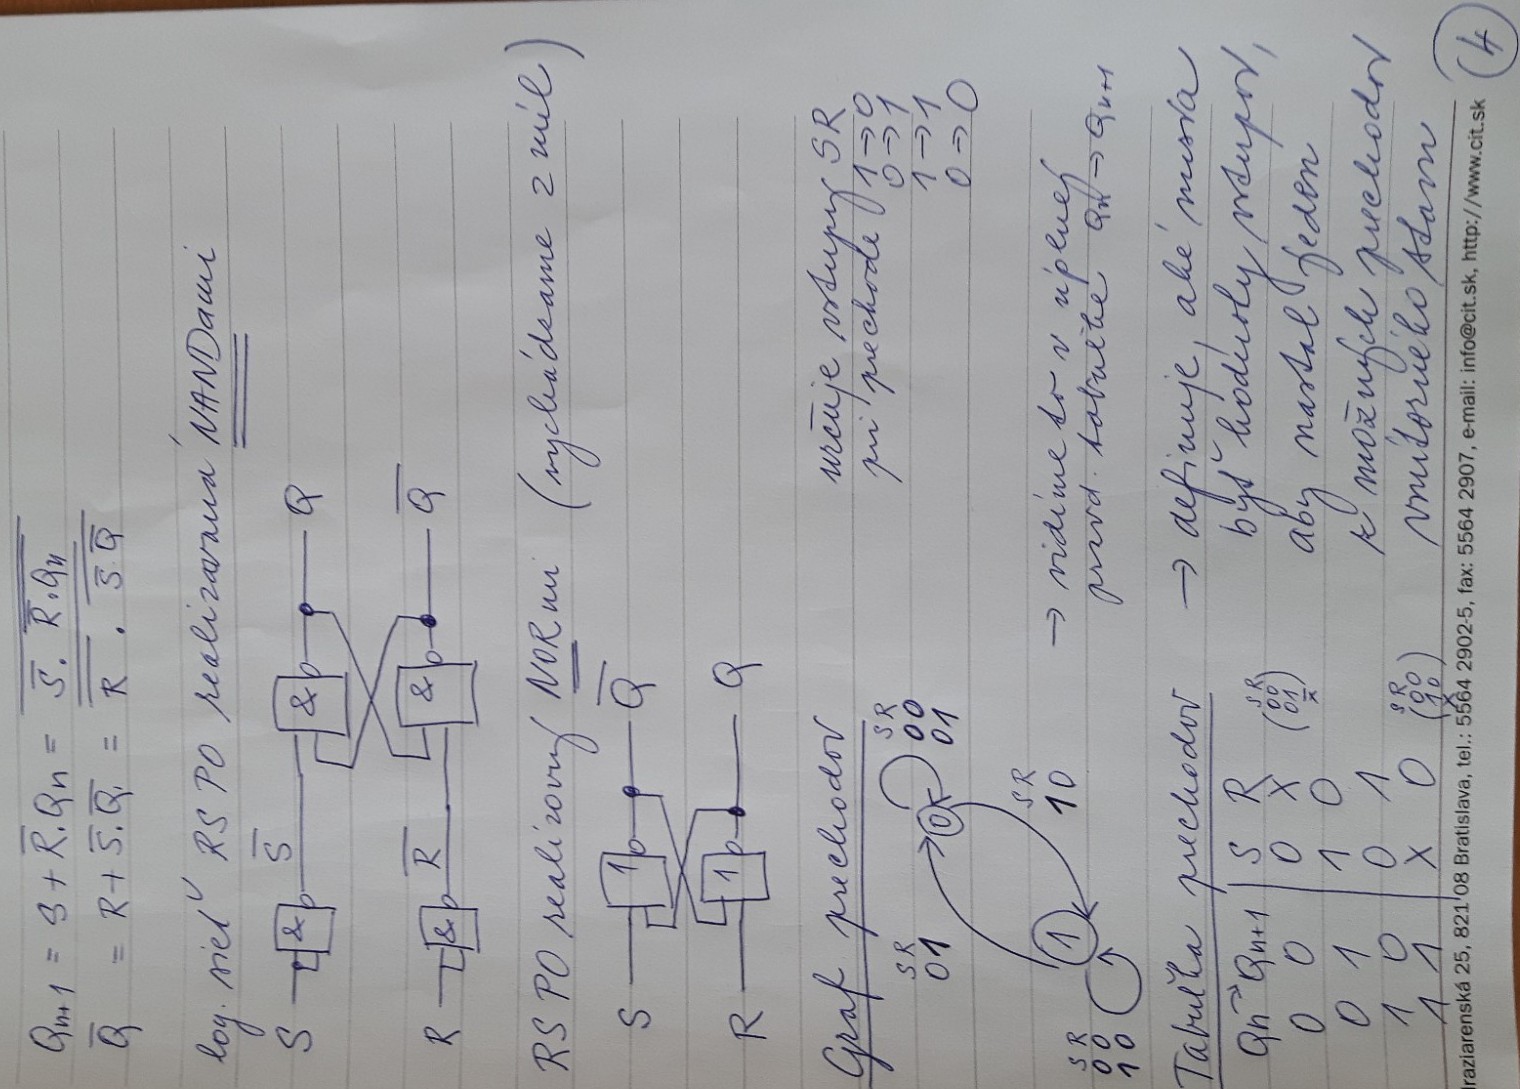 Qn+1 = S + R̅.Qn = S̅. R̅.Qn
Q̅ = R + S̅.Q̅ = R . S̅ Q̅
log. sieť RS PO realizovaná NANDami
S & S̅ & Q
R & R̅ & Q̅
RS PO realizovný NORmi (vychádzame z núl)
S 1 Q̅
R 1 Q
Graf prechodov
určuje vstupy SR
pri prechode 1→0
0→1
1→1
0→0
SR
01
0
SR
00
01
1
SR
10
SR
00
10
→ vidíme to v úplnej
pravd. tabuľke Qn → Qn+1
Tabuľka prechodov
Qn → Qn+1 | S R
0 0 | 0 X (SR 00 01 x)
0 1 | 1 0
1 0 | 0 1
1 1 | X 0 (SR 00 10 x)
→ definuje, aké musia
byť hodnoty vstupov,
aby nastal jeden
z možných prechodov
vnútorného stavu
raziarenská 25, 821 08 Bratislava, tel.: 5564 2902-5, fax: 5564 2907, e-mail: info@cit.sk, http://www.cit.sk
4